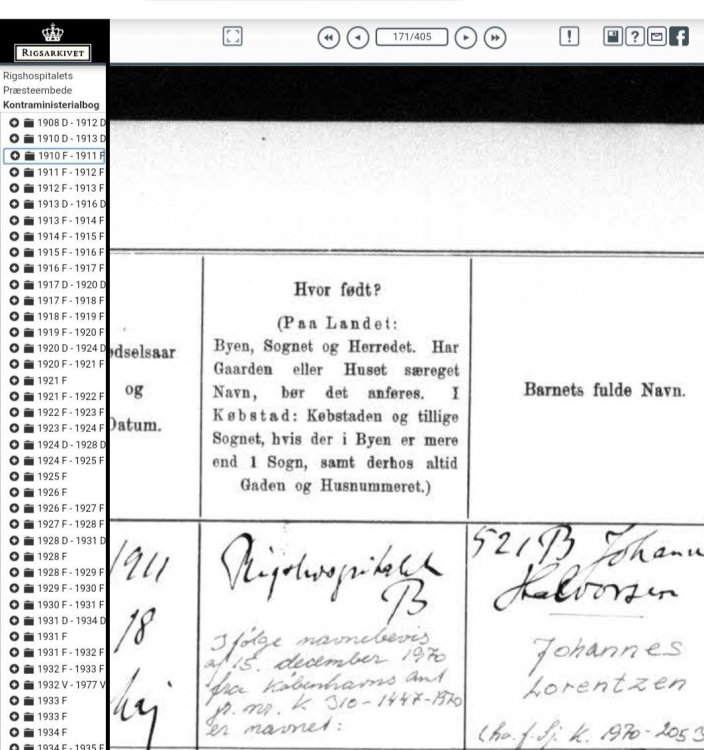 RIGSARKIVET
171/405
Rigshospitalets
Præsteembede
Kontraministerialbog
1908 D - 1912 D
1910 D - 1913 D
1910 F - 1911 F
1911 F - 1912 F
1912 F - 1913 F
1913 D - 1916 D
1913 F - 1914 F
1914 F - 1915 F
1915 F - 1916 F
1916 F - 1917 F
1917 D - 1920 D
1917 F - 1918 F
1918 F - 1919 F
1919 F - 1920 F
1920 D - 1924 D
1920 F - 1921 F
1921 F
1921 F - 1922 F
1922 F - 1923 F
1923 F - 1924 F
1924 D - 1928 D
1924 F - 1925 F
1925 F
1926 F
1926 F - 1927 F
1927 F - 1928 F
1928 D - 1931 D
1928 F
1928 F - 1929 F
1929 F - 1930 F
1930 F - 1931 F
1931 D - 1934 D
1931 F
1931 F - 1932 F
1932 F - 1933 F
1932 V - 1977 V
1933 F
1933 F
1934 F
1934 F - 1935 F
ødselsaar
og
Datum.
Hvor født?
(Paa Landet:
Byen, Sognet og Herredet. Har
Gaarden eller Huset særeget
Navn, bør det anføres. I
Købstad: Købstaden og tillige
Sognet, hvis der i Byen er mere
end 1 Sogn, samt derhos altid
Gaden og Husnummeret.)
Barnets fulde Navn.
1911
18
Maj
Rigshospitalet
B
Ifølge navnebevis
af 15. december 1970
fra Københavns amt
jr. nr. K 310-1447-1970
er navnet:
521B Johann
Halvorsen
Johannes
Lorentzen
K. 1970-2053